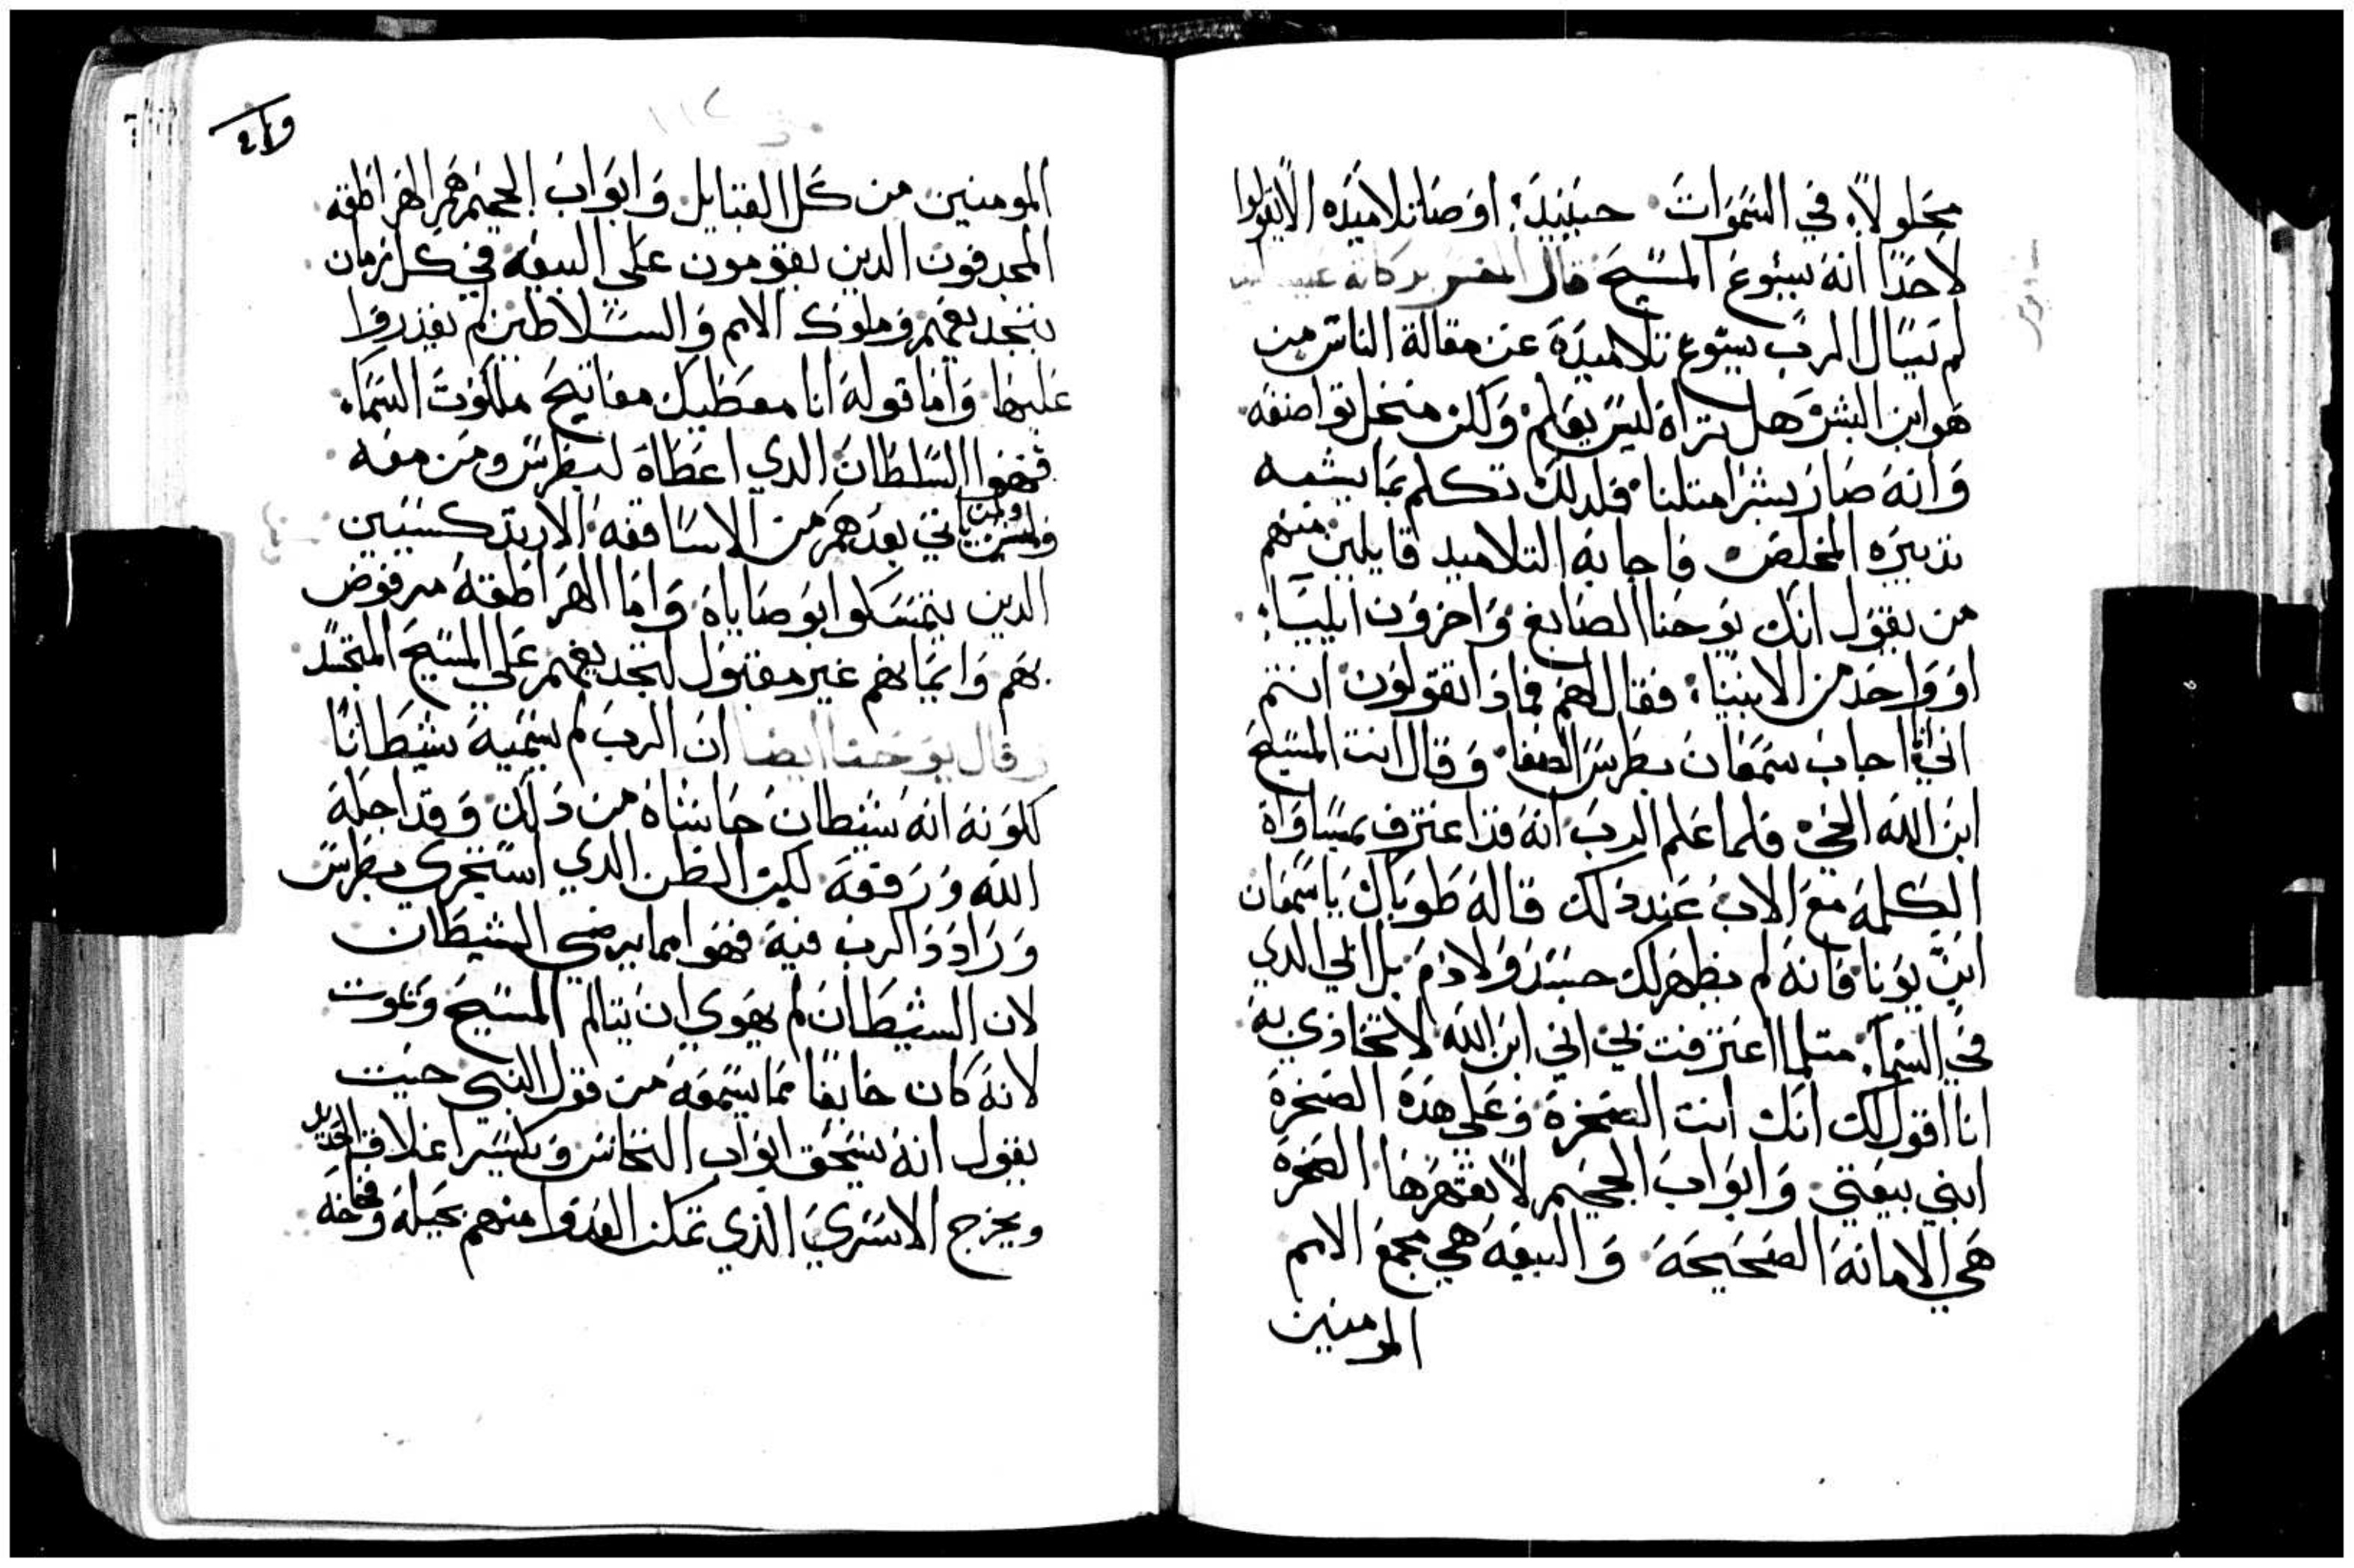 محلولاً في السموات حينيد اوصا تلاميده الا يقولوا
لاحدا انه يسوع المسيح قال المفسر بركاته عليه
لم يسال الرب يسوع تلاميده عن مقالة الناس من
هو ابن البشر هل تراه ليس يعلم ولكن من نحل تواضعه
وانه صار بشرا متلنا فلدلك تكلم بما يشبه
تدبيره المخلص فاجابه التلاميد قايلين منهم
من يقول انك يوحنا الصابغ واخرون ايليا
او واحد من الانبيا فقال لهم فمادا تقولون انتم
اني انا اجاب سمعان بطرس الصفا وقال انت المسيح
ابن الله الحي فلما علم الرب انه قد اعترف بمساواة
الكلمة مع الاب عند دلك قال له طوباك يا سمعان
ابن يونا فانه لم يظهر لك جسد ولا دم بل ابي الدي
في السما متلما اعترفت بي اني ابن الله لا تخادي به
انا اقول لك انك انت الصخرة وعلى هده الصخرة
ابني بيعتي وابواب الجحيم لا تقهرها الصخرة
هي الامانة الصحيحة والبيعة هي مجمع الامم
المومنين
المومنين من كل القبايل وابواب الجحيم هم الهراطقه
المجدفون الدين يقومون على البيعة في كل زمان
بتجديفهم وملوك الامم والسلاطين لم يقدروا
عليها واما قوله انا معطيك مفاتيح ملكوت السما
فهوا السلطان الدي اعطاه لبطرس ومن معه
ولمن ياتي بعدهم من الاساقفه الارتدكسيين
الدين يتمسكوا بوصاياه واما الهراطقة مرفوض
بهم وايمانهم غير مقبول لتجديفهم على المسيح المتجسد
وقال يوحنا ايضا ان الرب لم يسميه شيطانا
لكونه انه شيطان حاشاه من دلك وقد اجله
الله ورفعه لكن الظن الدي استجرى بطرس
وراد دا الرب فيه فهوا مما يرضي الشيطان
لان الشيطان لم يهوي ان يتالم المسيح ويموت
لانه كان خايفا مما يسمعه من قول النبي حيت
يقول انه يسحق ابواب النحاس ويكسر اغلاق الحديد
ويخرج الاسرى الذي تمكن العدوا منهم بحيلة وفخاخه